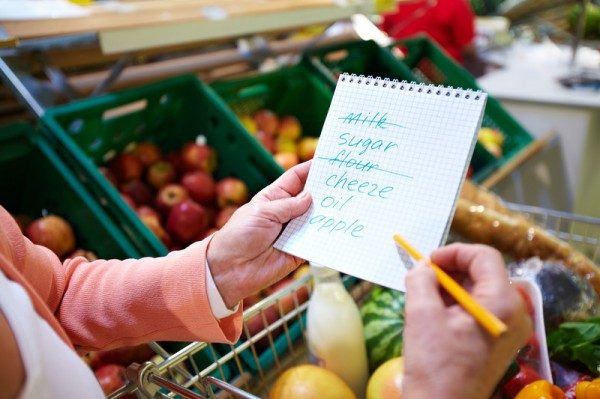 Milk
sugar
flour
cheeze
oil
apple